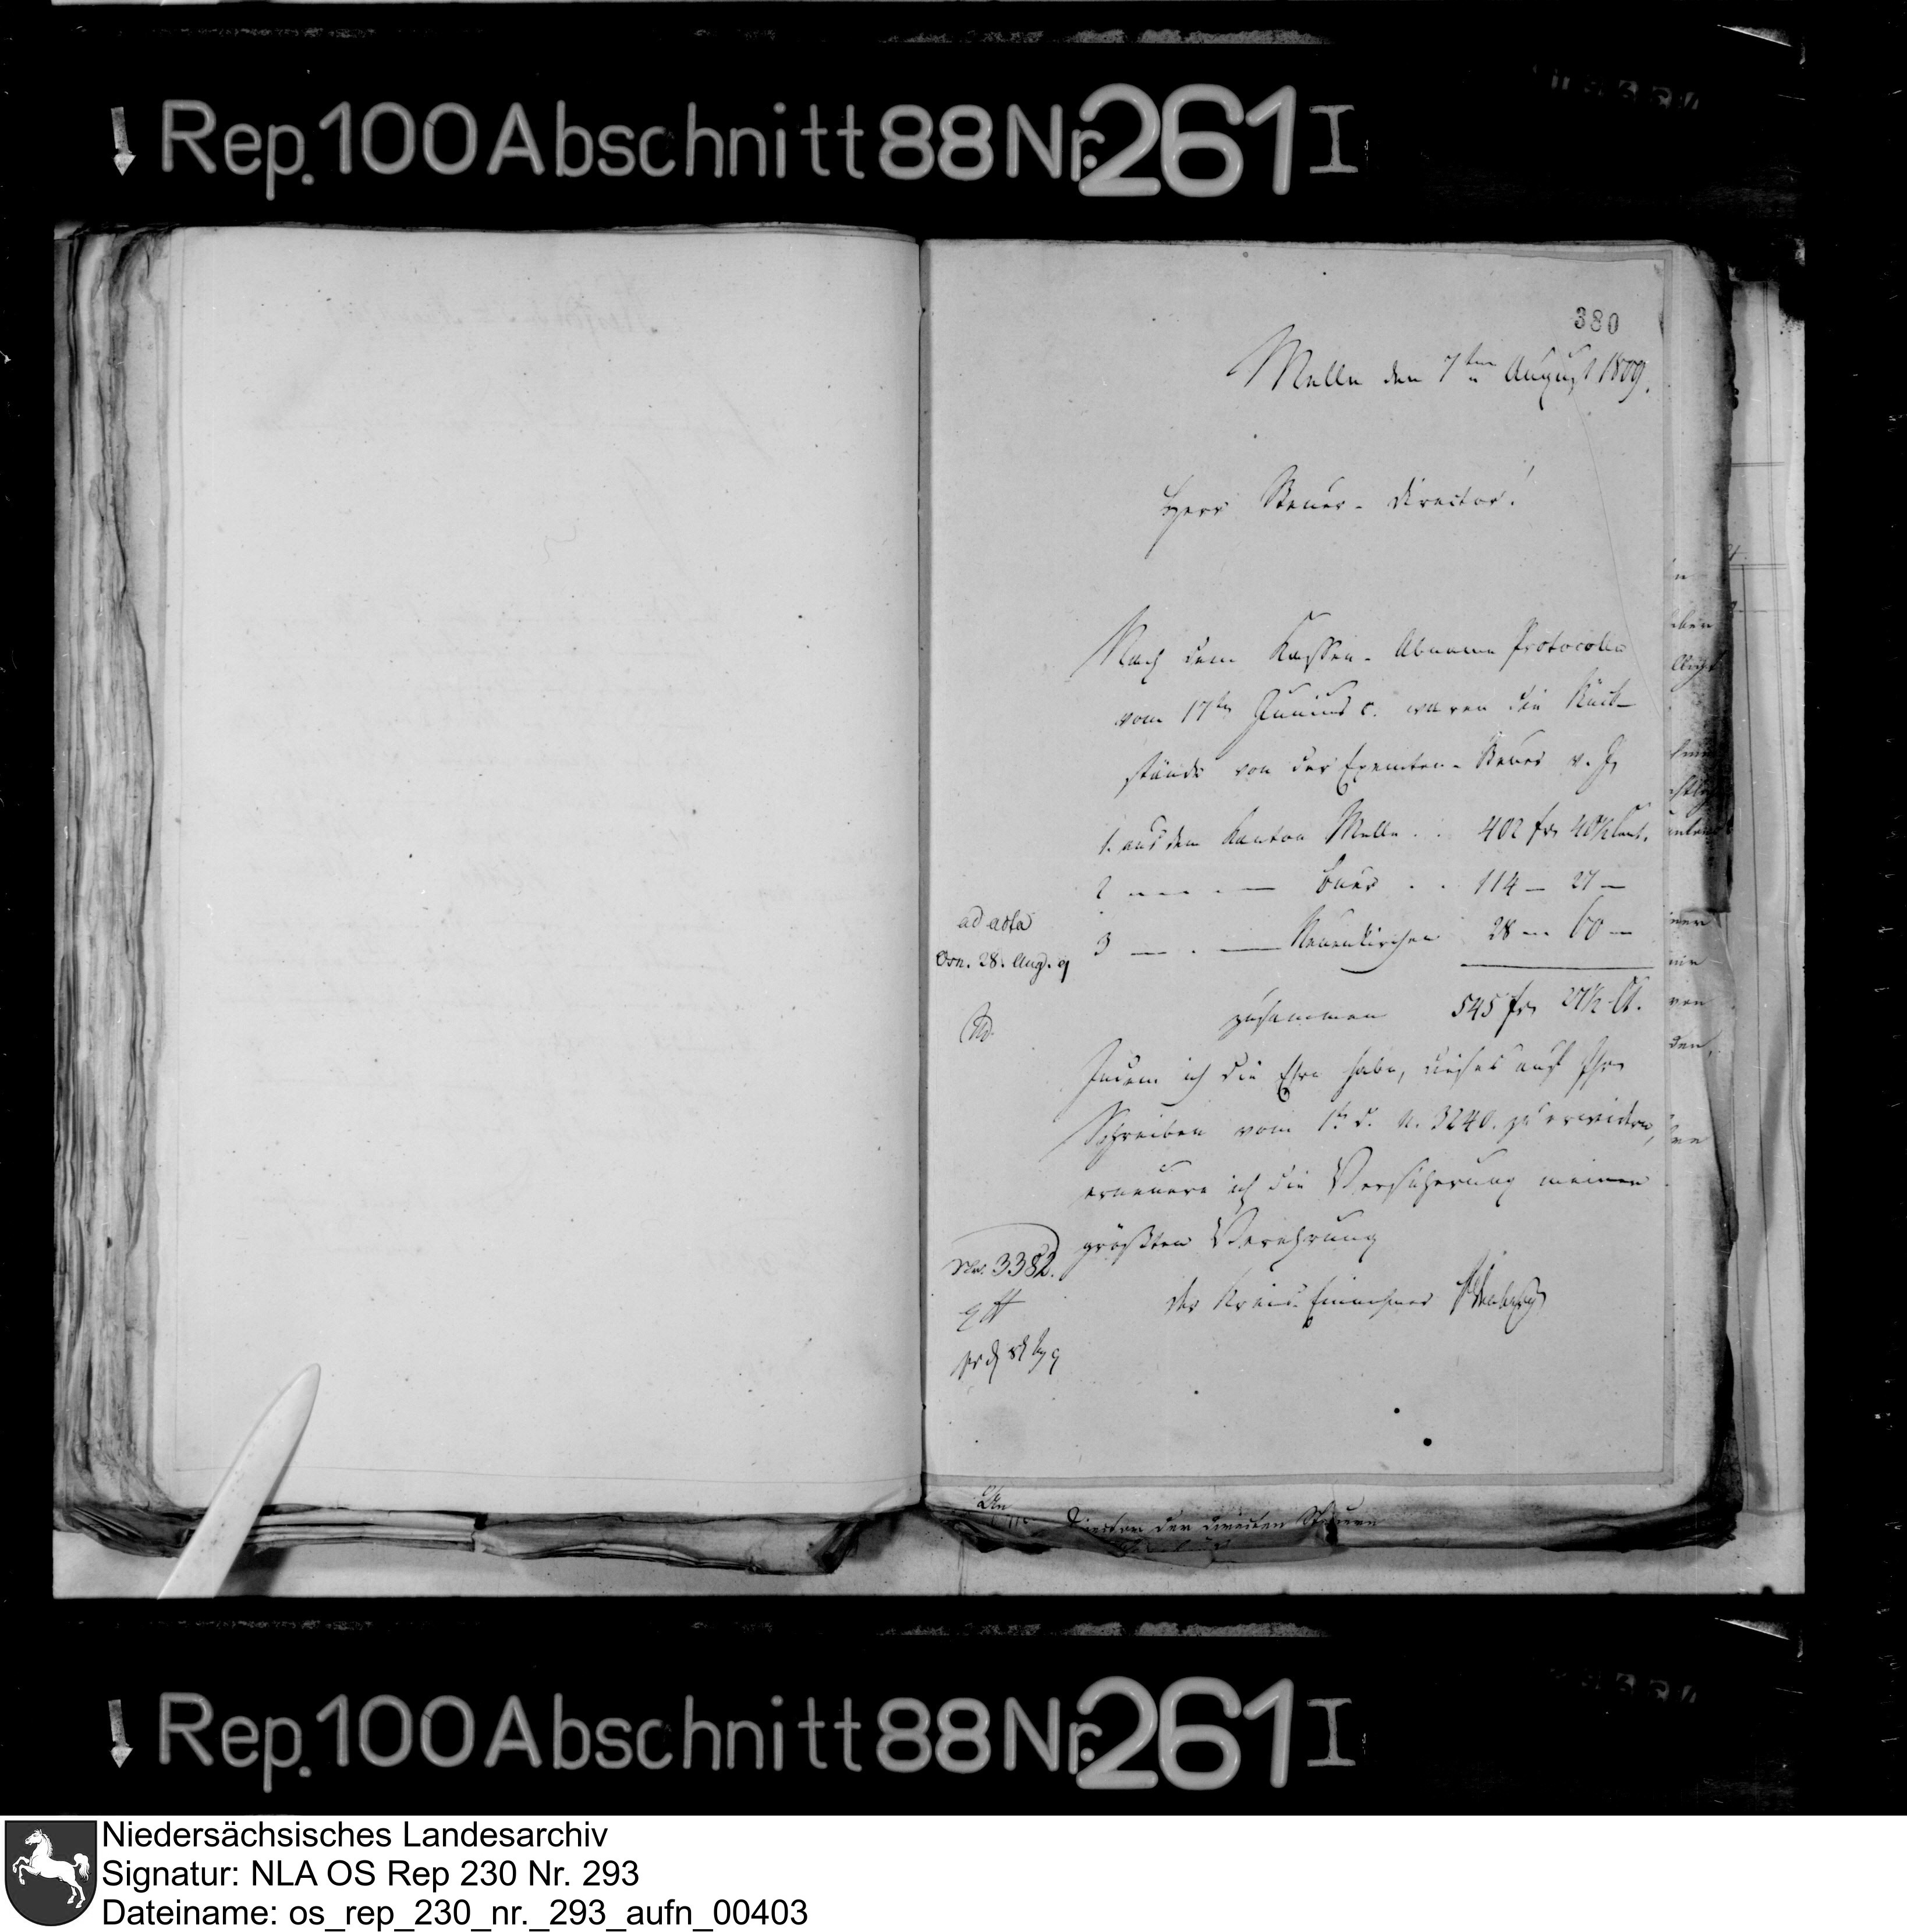 Rep. 100 Abschnitt 88 Nr. 261 I
380
Melle den 7ten August 1809.
Herr Steuer-Director!
Nach dem Kassen-Abname Protocolle
vom 17ten Junius c. waren die Rück-
stände von der Exemten-Steuer v. J.
1. aus dem Kanton Melle . . 402 fr 40½ Cent.
2 — — . — Buer . . 114 — 27 —
3 — . — Neuenkirchen 28 — 60 —
zusammen 545 fr 27½ Ct.
Indem ich die Ehre habe, dieses auf Ihr
Schreiben vom 1t d. N. 3240. zu erwidern,
erneuere ich die Versicherung meiner
größten Verehrung
der Kreis-Einnehmer
ad acta
Osn. 28. Aug. 9
No. 3382.
An
Director der directen Steuern
Rep. 100 Abschnitt 88 Nr. 261 I
Niedersächsisches Landesarchiv
Signatur: NLA OS Rep 230 Nr. 293
Dateiname: os_rep_230_nr._293_aufn_00403